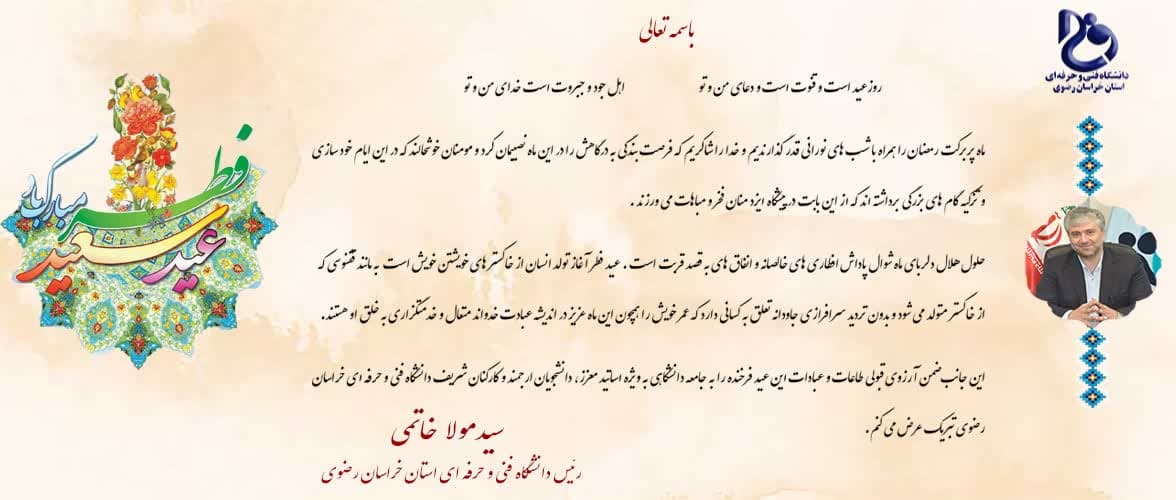 باسمه تعالی
دانشگاه فنی و حرفه‌ای
استان خراسان رضوی
روز عید است و قنوت است و دعای من و تو اهل جود و جبروت است خدای من و تو
ماه پر برکت رمضان را همراه با شب های نورانی قدر گذارندیم و خدا را شاکریم که فرصت بندگی به درگاهش را در این ماه نصیبمان کرد و مومنان خوشحالند که در این ایام خود سازی
و تزکیه گام های بزرگی برداشته اند که از این بابت در پیشگاه ایزد منان فخر و مباهات می ورزند .
حلول هلال دلربای ماه شوال پاداش افطاری های خالصانه و انفاق های به قصد قربت است . عید فطر آغاز تولد انسان از خاکسترهای خویشتن خویش است به مانند ققنوسی که
از خاکستر متولد می شود و بدون تردید سرافرازی جاودانه تعلق به کسانی دارد که عمر خویش را همچون این ماه عزیز در اندیشه عبادت خداوند متعال و خدمتگزاری به خلق او هستند.
این جانب ضمن آرزوی قبولی طاعات و عبادات این عید فرخنده را به جامعه دانشگاهی به ویژه اساتید معزز ، دانشجویان ارجمند و کارکنان شریف دانشگاه فنی و حرفه ای خراسان
رضوی تبریک عرض می کنم .
سید مولا خاتمی
رئیس دانشگاه فنی و حرفه ای استان خراسان رضوی
عید سعید فطر مبارک باد